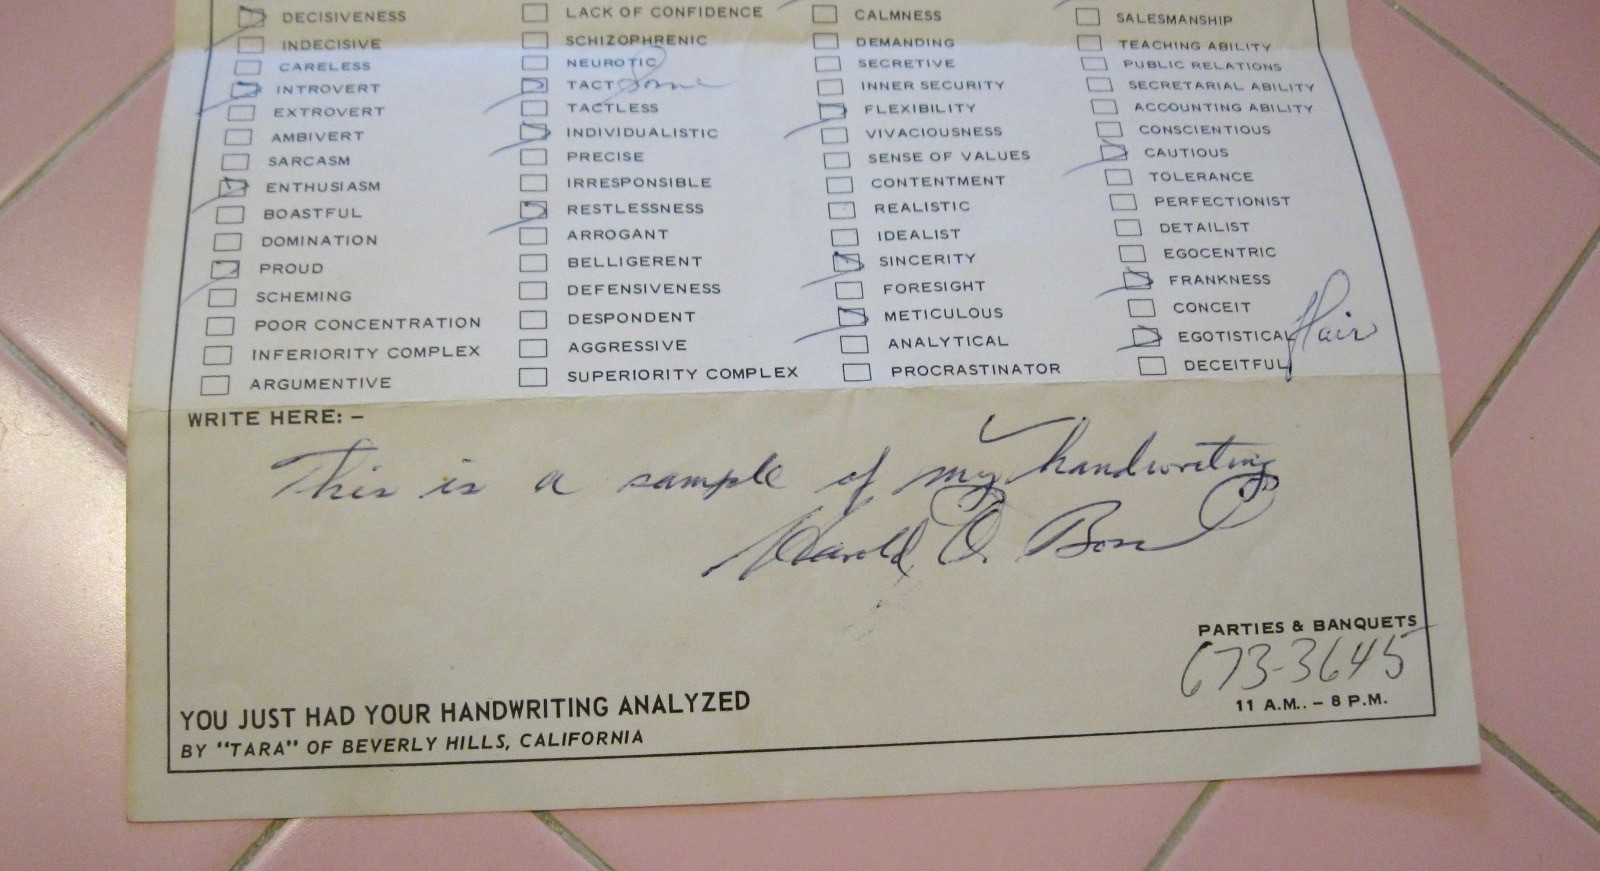 DECISIVENESS LACK OF CONFIDENCE CALMNESS SALESMANSHIP
INDECISIVE SCHIZOPHRENIC DEMANDING TEACHING ABILITY
CARELESS NEUROTIC SECRETIVE PUBLIC RELATIONS
INTROVERT TACT Some INNER SECURITY SECRETARIAL ABILITY
EXTROVERT TACTLESS FLEXIBILITY ACCOUNTING ABILITY
AMBIVERT INDIVIDUALISTIC VIVACIOUSNESS CONSCIENTIOUS
SARCASM PRECISE SENSE OF VALUES CAUTIOUS
ENTHUSIASM IRRESPONSIBLE CONTENTMENT TOLERANCE
BOASTFUL RESTLESSNESS REALISTIC PERFECTIONIST
DOMINATION ARROGANT IDEALIST DETAILIST
PROUD BELLIGERENT SINCERITY EGOCENTRIC
SCHEMING DEFENSIVENESS FORESIGHT FRANKNESS
POOR CONCENTRATION DESPONDENT METICULOUS CONCEIT
INFERIORITY COMPLEX AGGRESSIVE ANALYTICAL EGOTISTICAL flair
ARGUMENTIVE SUPERIORITY COMPLEX PROCRASTINATOR DECEITFUL
WRITE HERE: –
This is a sample of my handwriting
Harold O.
PARTIES & BANQUETS
673-3645
11 A.M.. – 8 P.M.
YOU JUST HAD YOUR HANDWRITING ANALYZED
BY "TARA" OF BEVERLY HILLS, CALIFORNIA